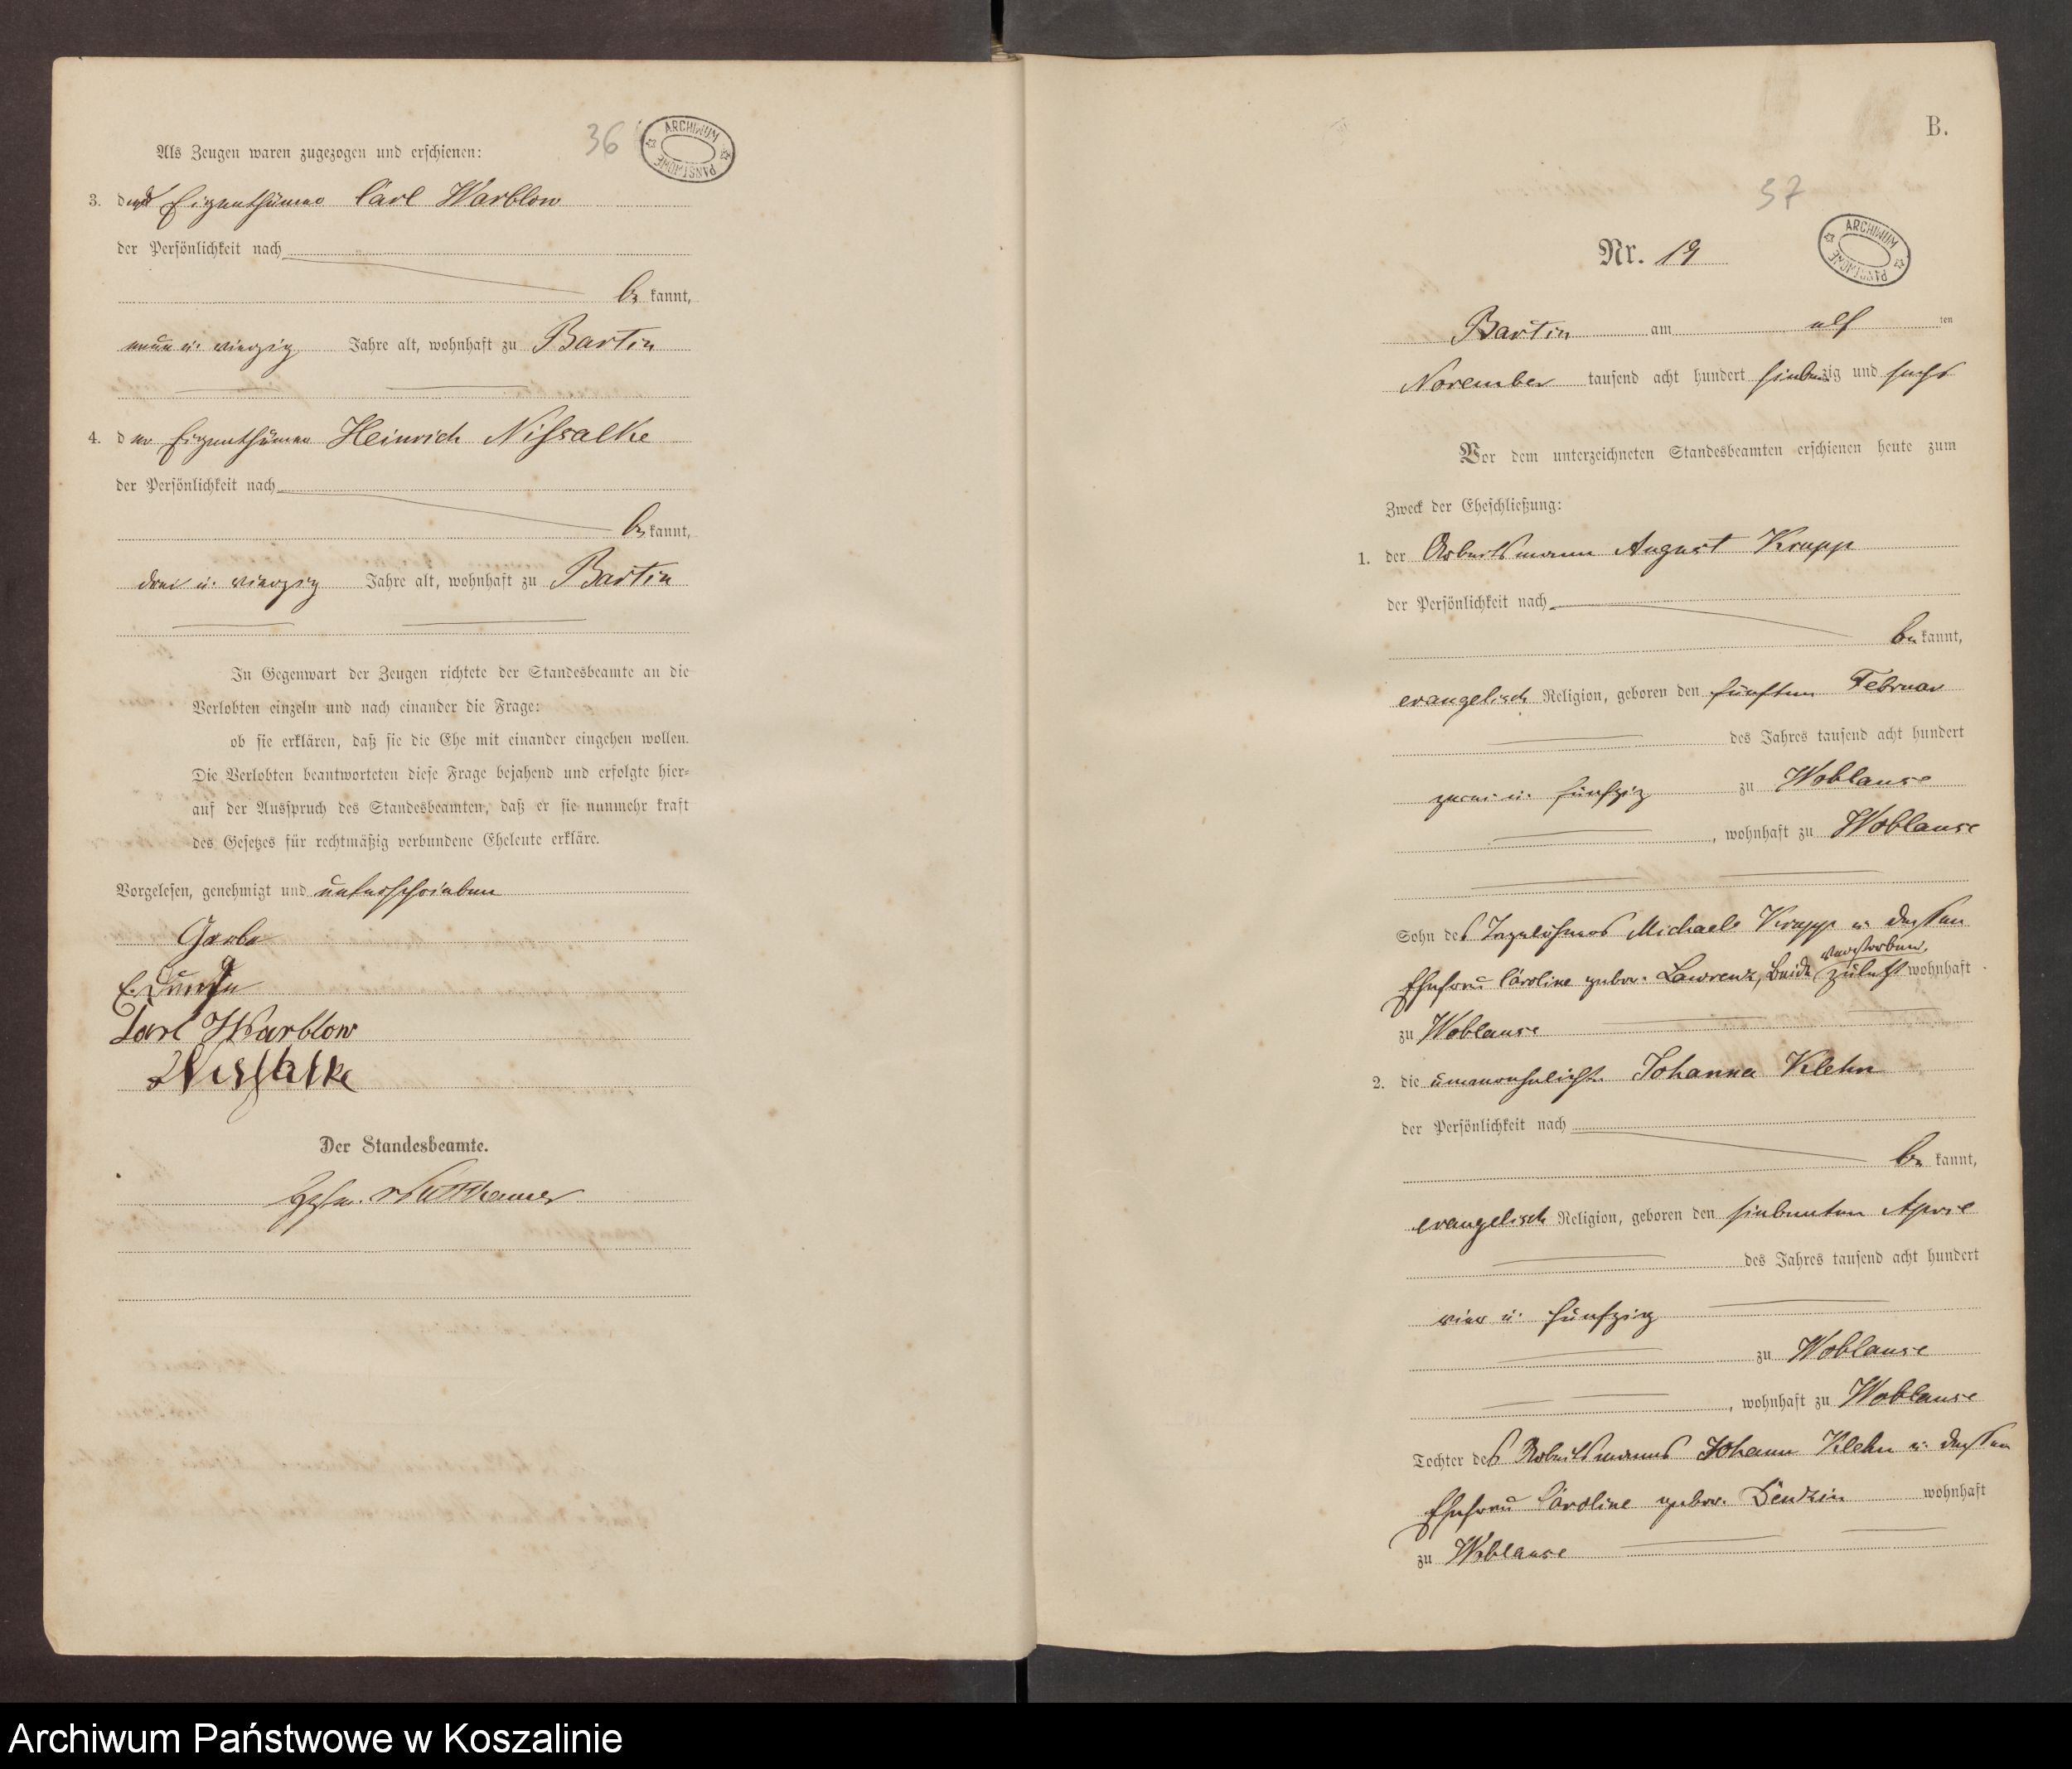 36
ARCHIWUM PAŃSTWOWE
Als Zeugen waren zugezogen und erschienen:
3. der Eigenthümer Carl Warblow
der Persönlichkeit nach
be kannt,
neun u. vierzig Jahre alt, wohnhaft zu Bartin
4. der Eigenthümer Heinrich Nissalke
der Persönlichkeit nach
be kannt,
drei u. vierzig Jahre alt, wohnhaft zu Bartin
In Gegenwart der Zeugen richtete der Standesbeamte an die
Verlobten einzeln und nach einander die Frage:
ob sie erklären, daß sie die Ehe mit einander eingehen wollen.
Die Verlobten beantworteten diese Frage bejahend und erfolgte hier-
auf der Ausspruch des Standesbeamten, daß er sie nunmehr kraft
des Gesetzes für rechtmäßig verbundene Eheleute erkläre.
Vorgelesen, genehmigt und unterschrieben
Carl Warblow
Nissalke
Der Standesbeamte.
B.
37
ARCHIWUM PAŃSTWOWE
Nr. 19
Bartin am elf ten
November tausend acht hundert siebenzig und sechs
Vor dem unterzeichneten Standesbeamten erschienen heute zum
Zweck der Eheschließung:
1. der Arbeitsmann August Krupp
der Persönlichkeit nach
be kannt,
evangelisch Religion, geboren den fünften Februar
des Jahres tausend acht hundert
zwei u. fünfzig zu Woblanse
, wohnhaft zu Woblanse
Sohn des Tagelöhners Michael Krupp u. dessen
verstorben,
Ehefrau Caroline gebor. Lawrenz, beide zuletzt wohnhaft
zu Woblanse
2. die unverehelichte Johanna Klehn
der Persönlichkeit nach
be kannt,
evangelisch Religion, geboren den siebenten April
des Jahres tausend acht hundert
vier u. fünfzig
zu Woblanse
, wohnhaft zu Woblanse
Tochter des Arbeitsmanns Johann Klehn u. dessen
Ehefrau Caroline gebor. Denzin wohnhaft
zu Woblanse
Archiwum Państwowe w Koszalinie